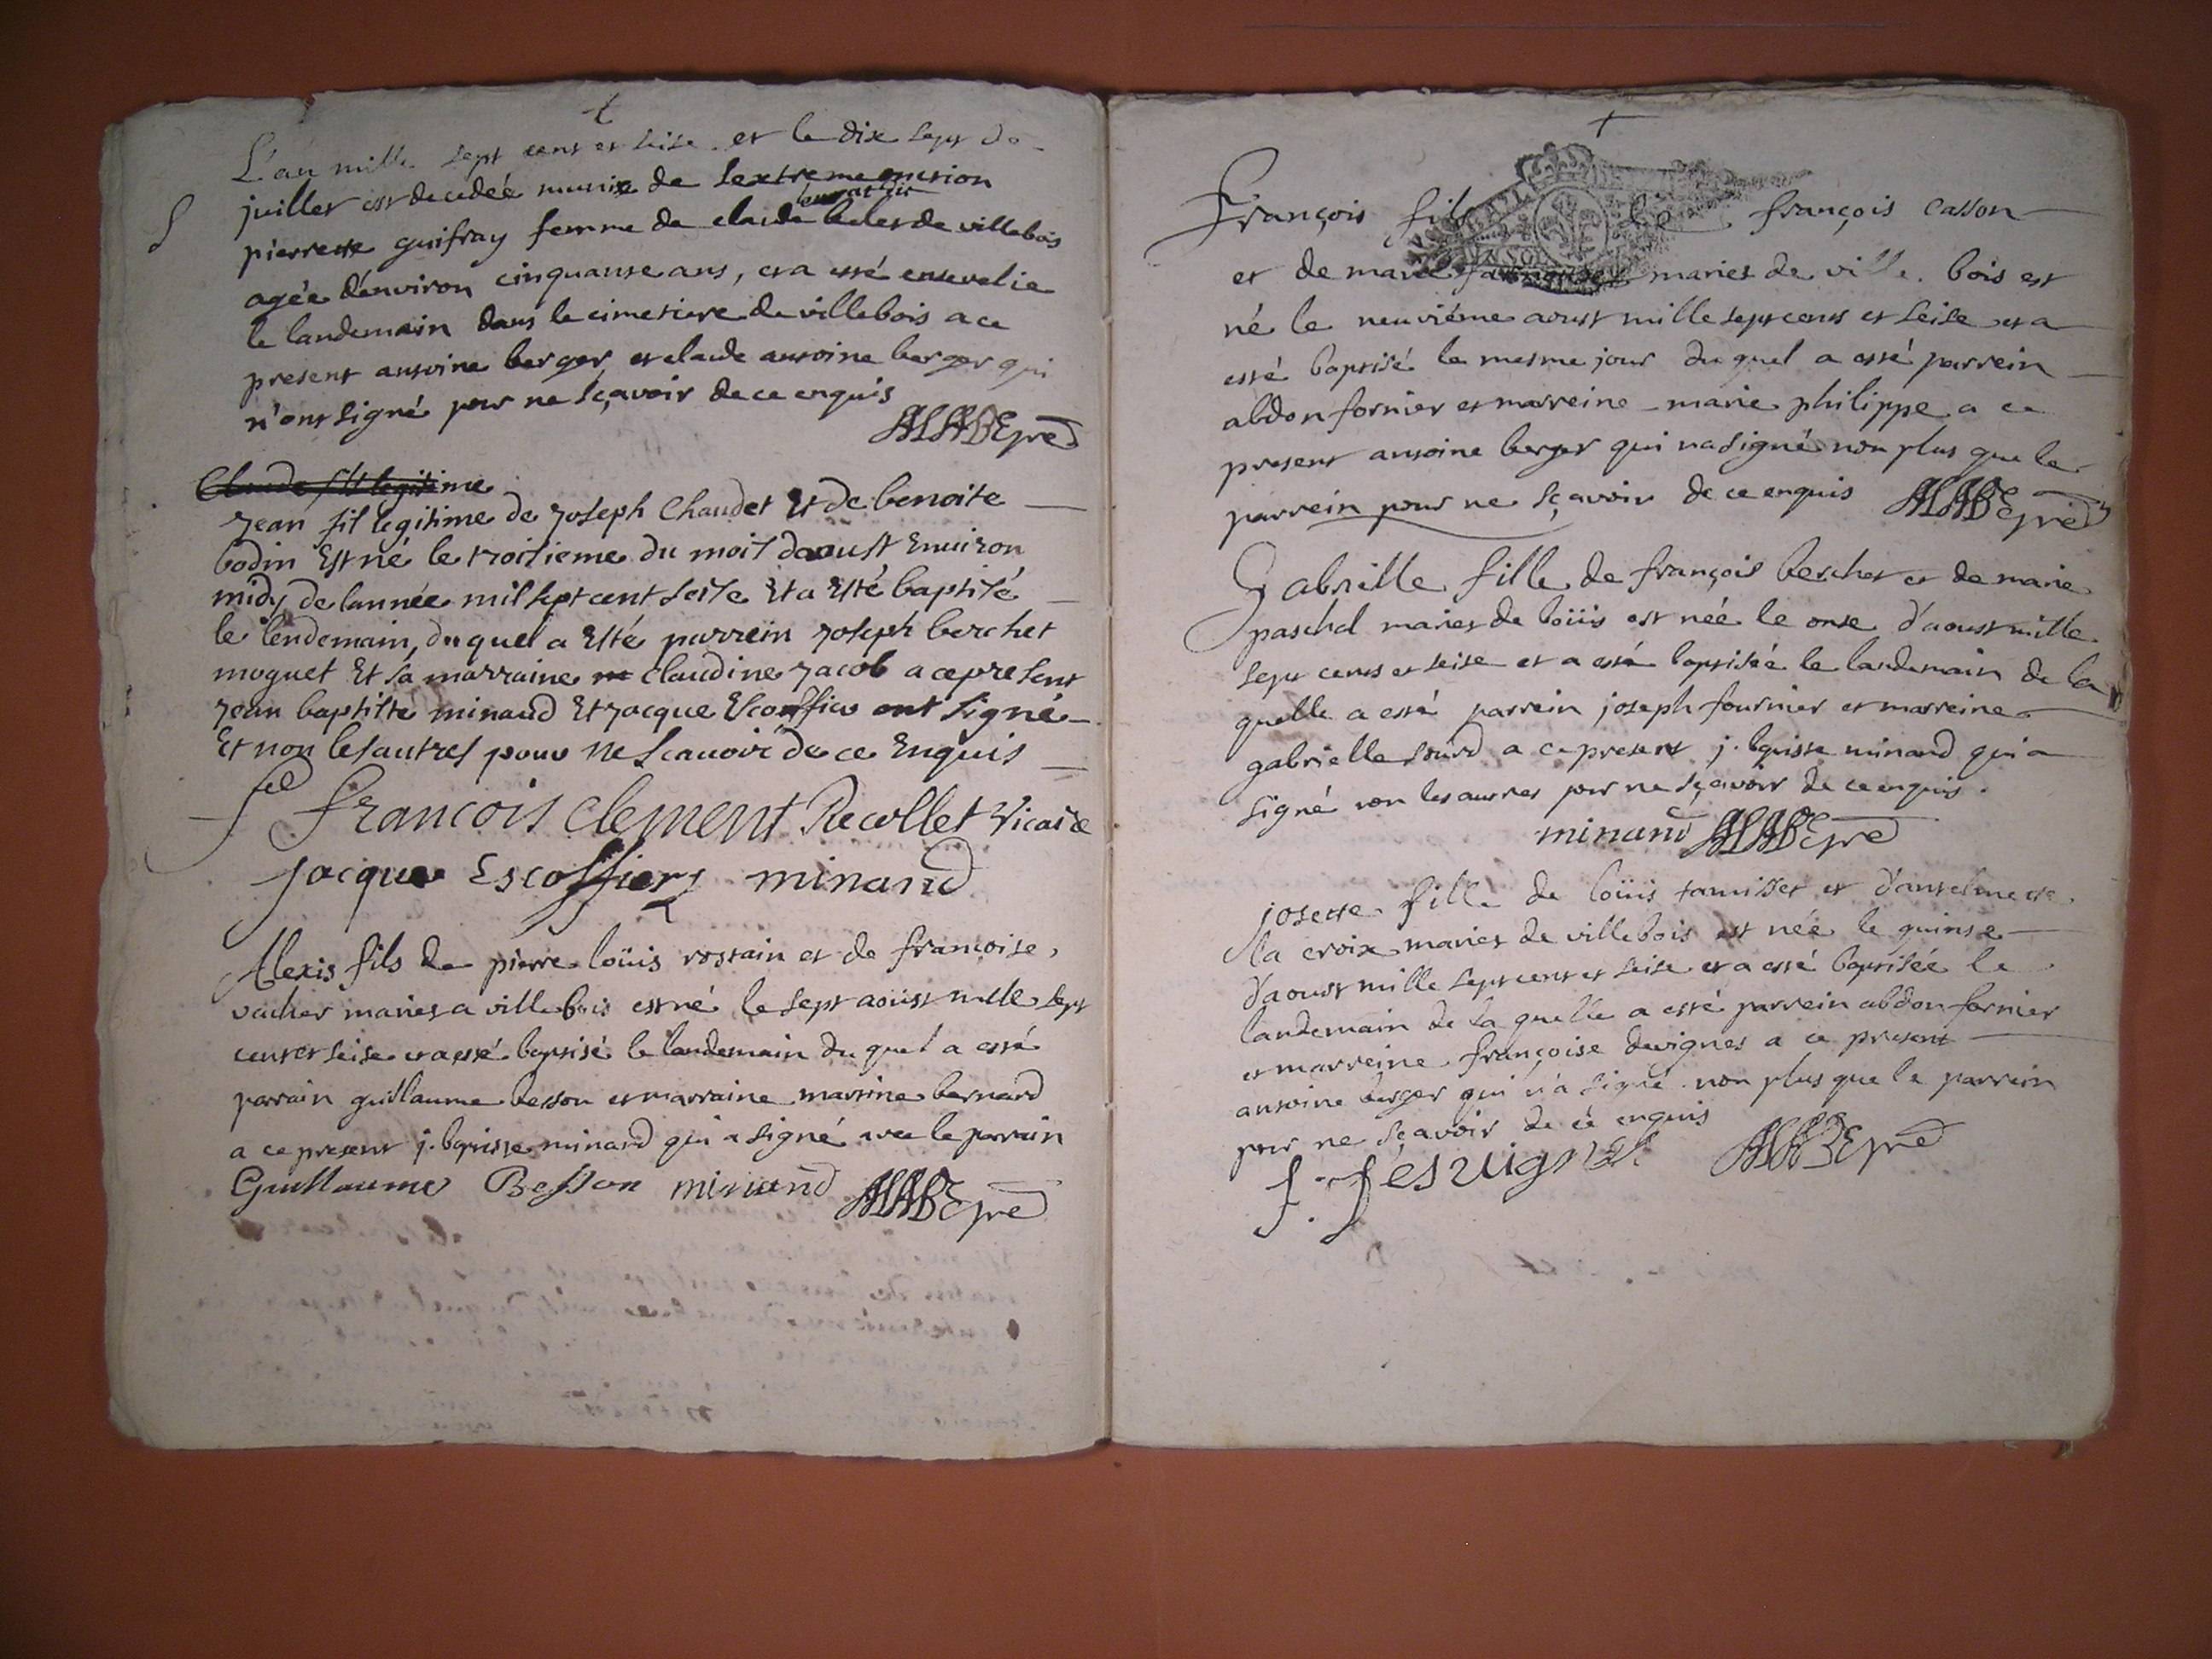 L'an mille sept cent et seise et le dix sept de
juillet est decedeé munie de lextreme onction
pierrette guifray femme de claude de villebois
agée d'environ cinquante ans, et a esté ensevelie
le landemain dans le cimetiere de villebois a ce
present antoine berger et claude antoine berger qui
n'ont signé pour ne sçavoir de ce enquis
Claude fil legitime
Jean fil legitime de Joseph Chaudet Et de benoite
bodin Est né le troisieme du mois daoust Environ
midy de lannée mil sept cent seise Et a Esté baptisé
le lendemain, du quel a Esté parrein Joseph berchet
moguet Et sa marraine claudine Jacob a ce present
Jean baptiste minaud Et Jacque Escoffier ont signé
Et non les autres pour ne scauoir de ce Enquis
François Clement Recollet Vicaire
Jacque Escoffier minand
Alexis fils de pierre loüis rostain et de francoise
vacher mariés a villebois est né le sept aoüst mille sept
cent et seise et a esté baptisé le landemain du quel a esté
parrain guillaume besson et marraine martine bernard
a ce present j. baptiste minand qui a signé avec le parrain
Guillaume Besson minand
François fils de françois Casson
et de marie mariés de ville bois est
né le neuviéme aoust mille sept cent et seise et a
esté baptisé le mesme jour du quel a esté parrein
abdon fornier et marreine marie philippe a ce
present antoine berger qui na signé non plus que le
parrein pour ne sçavoir de ce enquis
Gabrielle fille de françois bercher et de marie
paschal mariés de boüis est née le onse d'aoust mille
sept cents et seise et a esté baptisée le landemain de la
quelle a esté parrein joseph fournier et marreine
gabrielle sourd a ce present j. baptiste minand qui a
signé non les autres pour ne sçavoir de ce enquis
minand
josette fille de loüis tamisser et d'antelmette
la croix mariés de villebois est née le quinse
d'aoust mille sept cent et seise et a esté baptisée le
landemain de la quelle a esté parrein abdon fornier
et marreine françoise devignes a ce present
antoine berger qui n'a signé non plus que le parrein
pour ne sçavoir de ce enquis